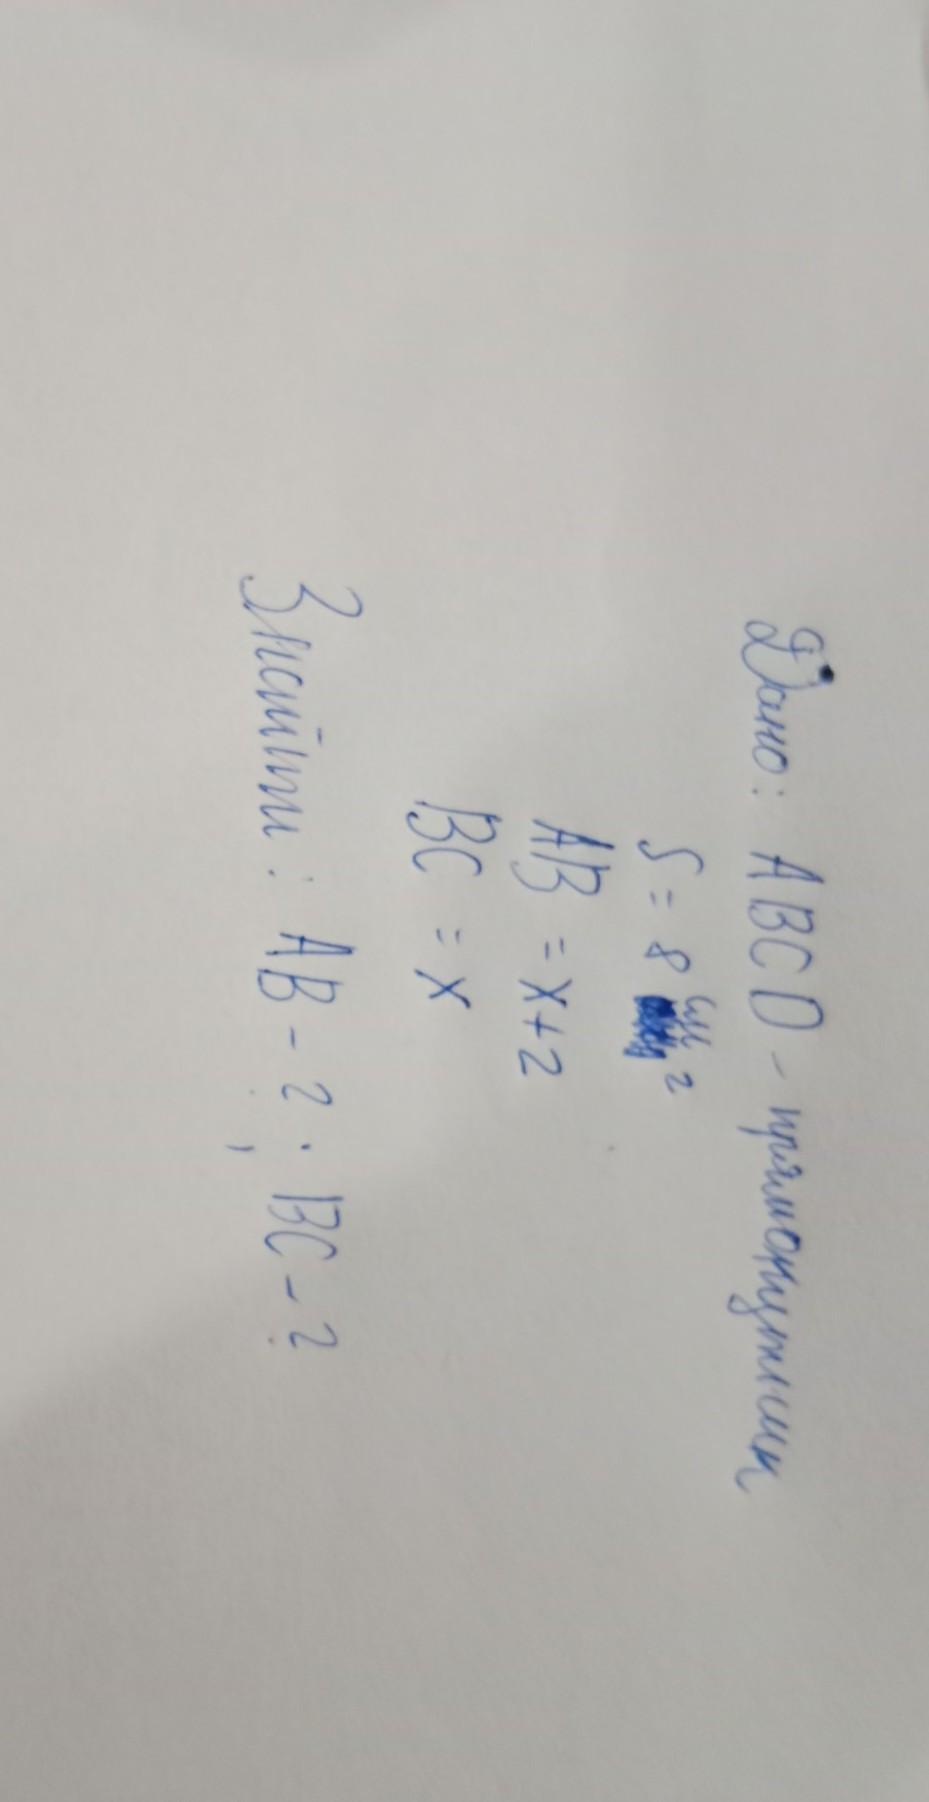 Дано: ABCD - прямокутник
S = 8 см²
AB = x+2
BC = x
Знайти: AB - ?; BC - ?